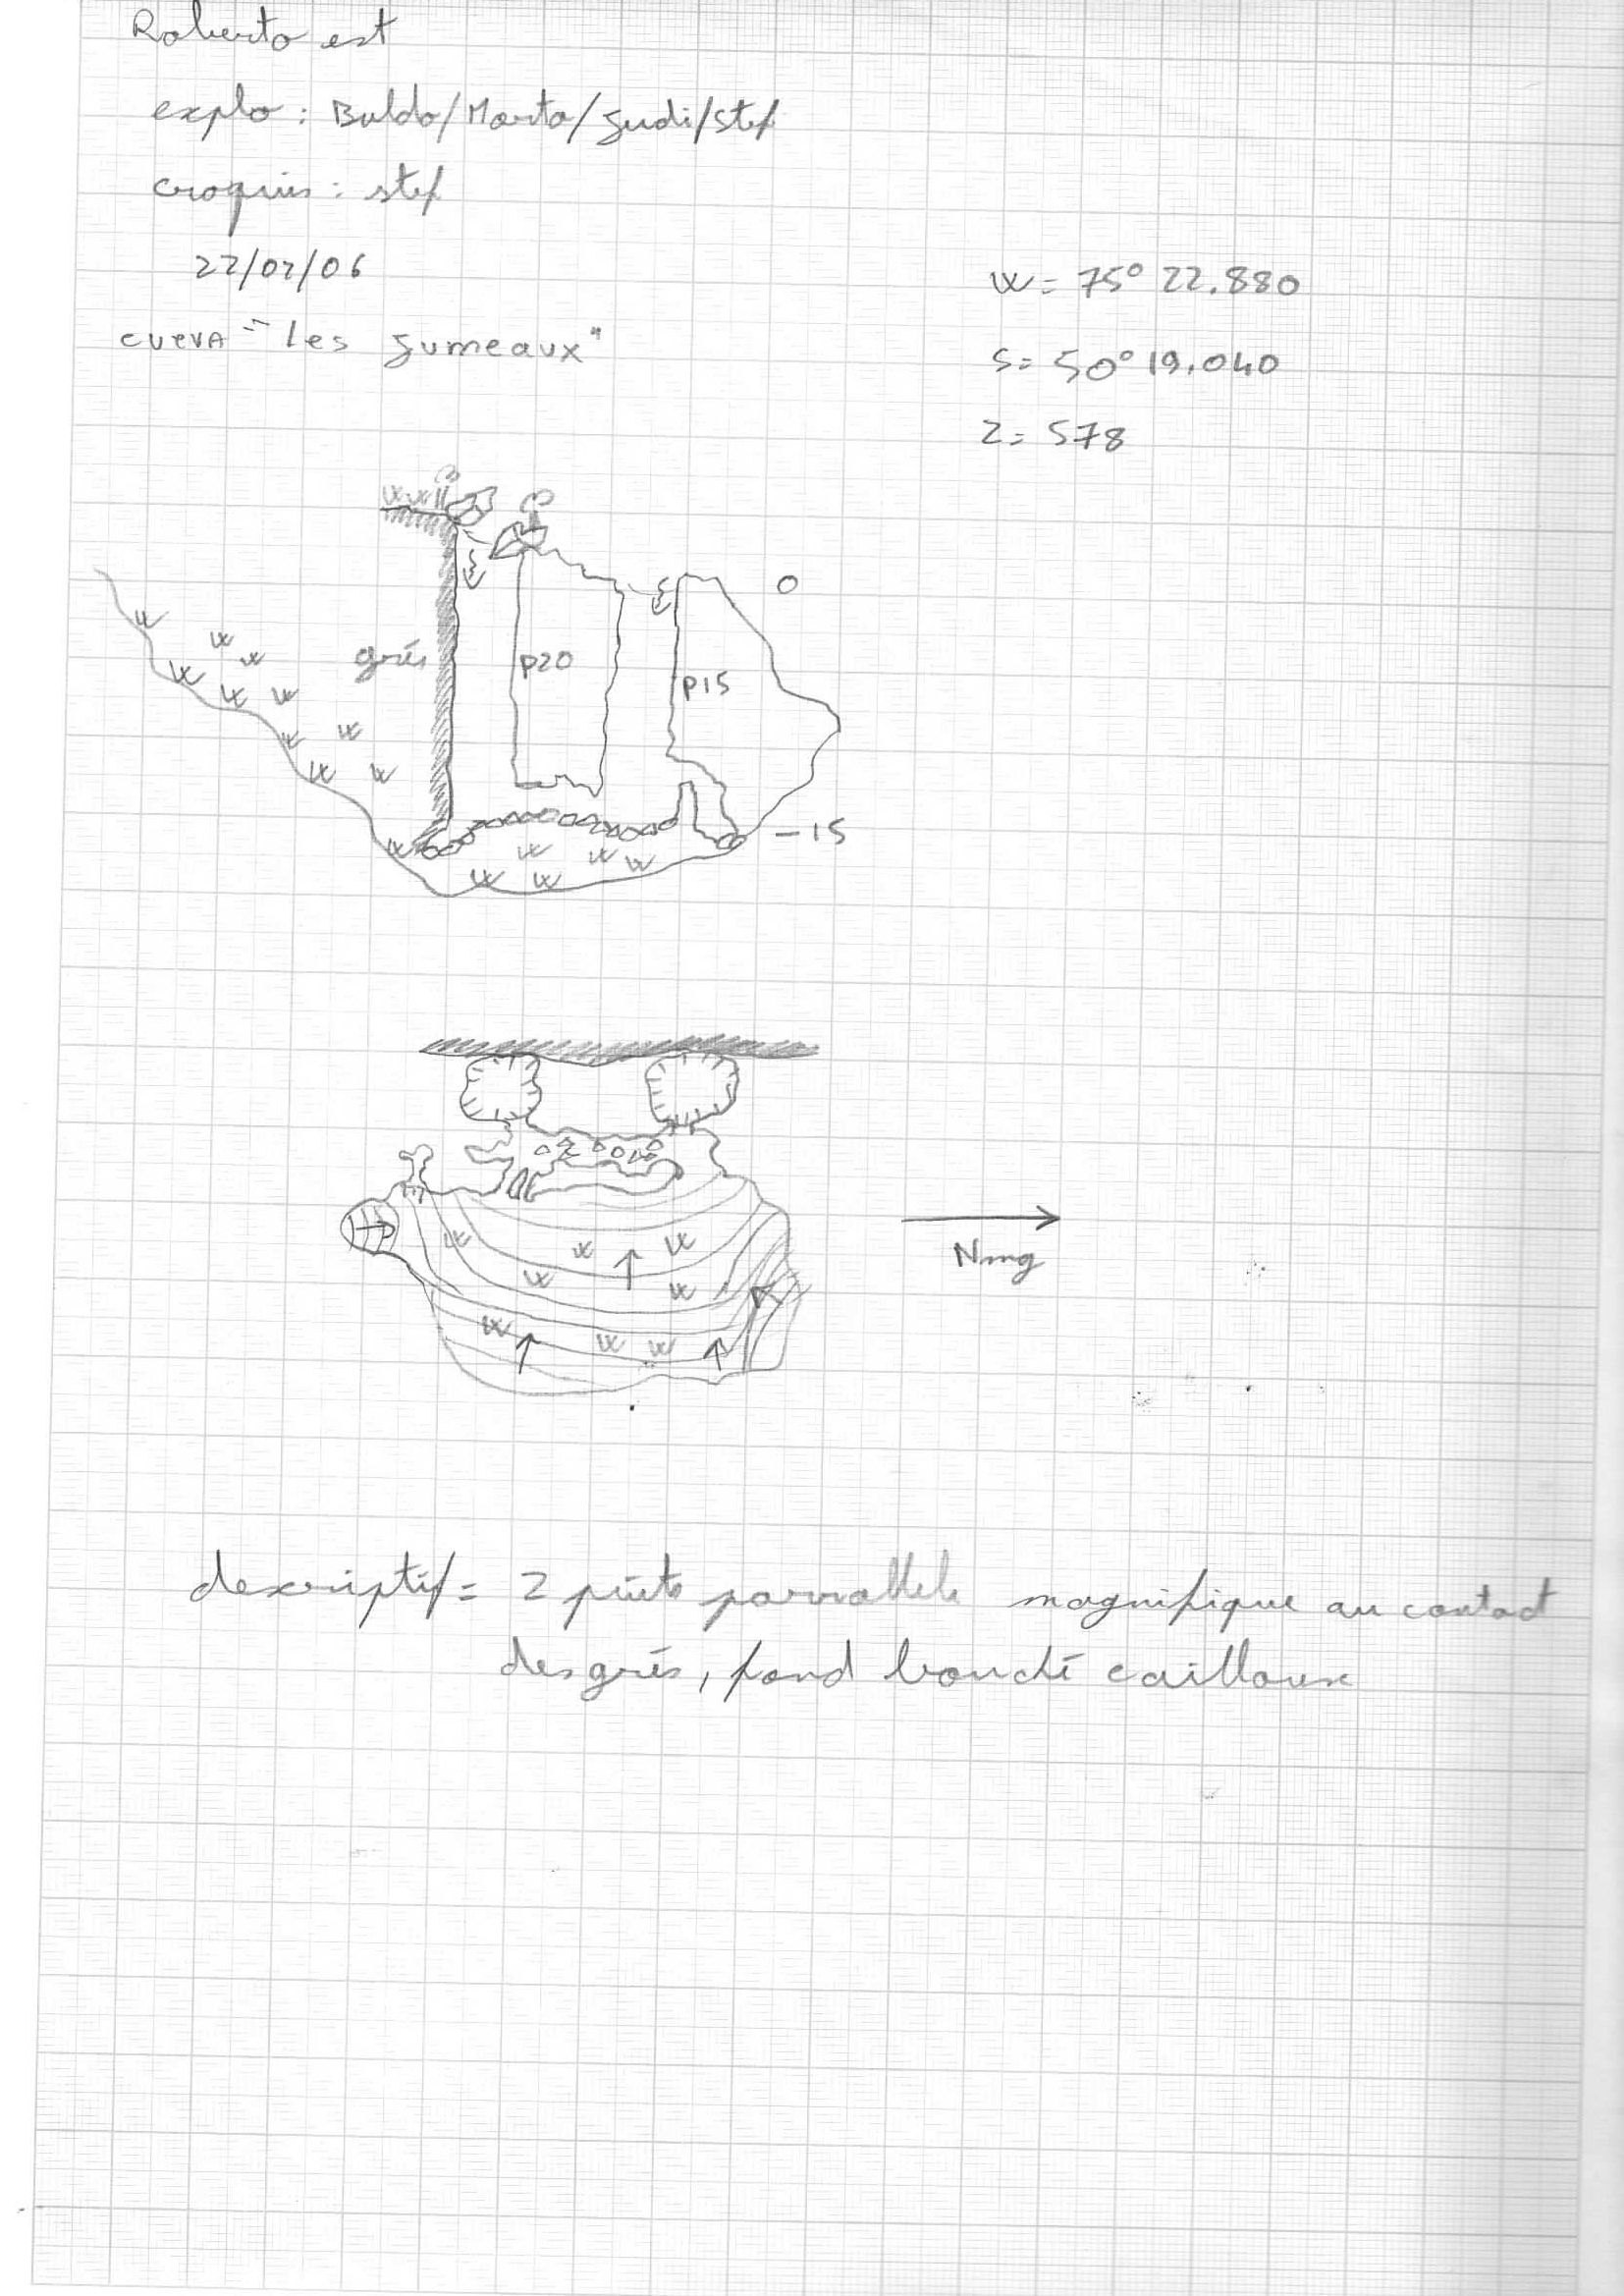 Roberto est
explo : Buldo/Marta/Judi/Stef
croquis : stef
22/02/06
CUEVA "les jumeaux"
W = 75° 22.880
S = 50° 19.040
Z = 578
0
grés
P20
P15
-15
Nmg
descriptif = 2 puits parrallele magnifique au contact
des grés, fond bouché cailloux